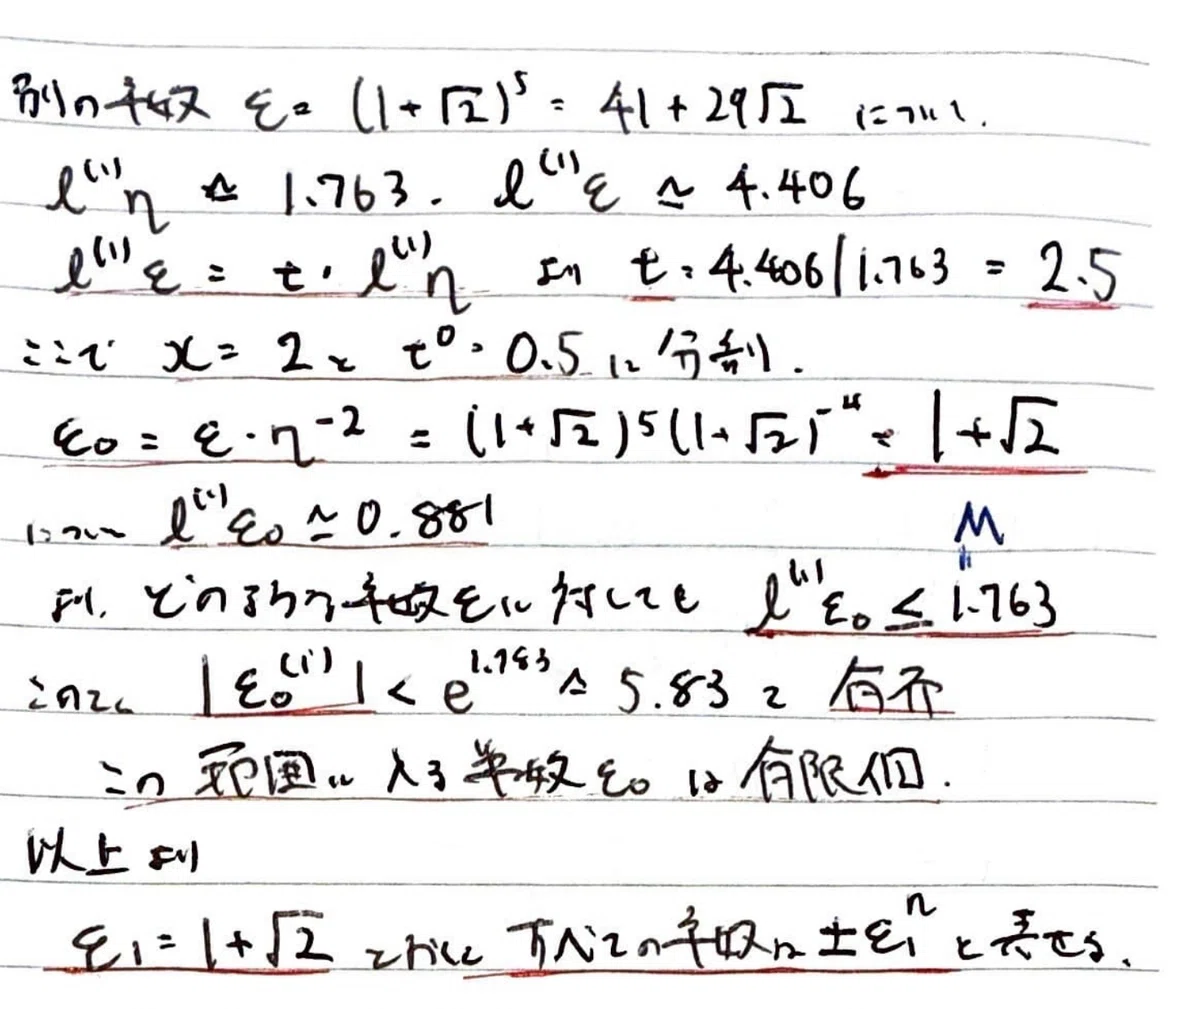 別の単数 ε = (1+√2)⁵ = 41+29√2 について.
l⁽¹⁾η ≃ 1.763. l⁽¹⁾ε ≃ 4.406
l⁽¹⁾ε = t・l⁽¹⁾η より t = 4.406/1.763 = 2.5
ここで x = 2 と t⁰ = 0.5 に分割.
ε₀ = ε・η⁻² = (1+√2)⁵(1+√2)⁻⁴ = 1+√2
について l⁽¹⁾ε₀ ≃ 0.881
M
"
より, どのような単数εに対しても l⁽¹⁾ε₀ ≤ 1.763
このとき |ε₀⁽ⁱ⁾| < e^1.763 ≃ 5.83 と有界
この範囲に入る単数 ε₀ は有限個.
以上より
ε₁ = 1+√2 とすれば すべての単数は ±ε₁ⁿ と表せる.